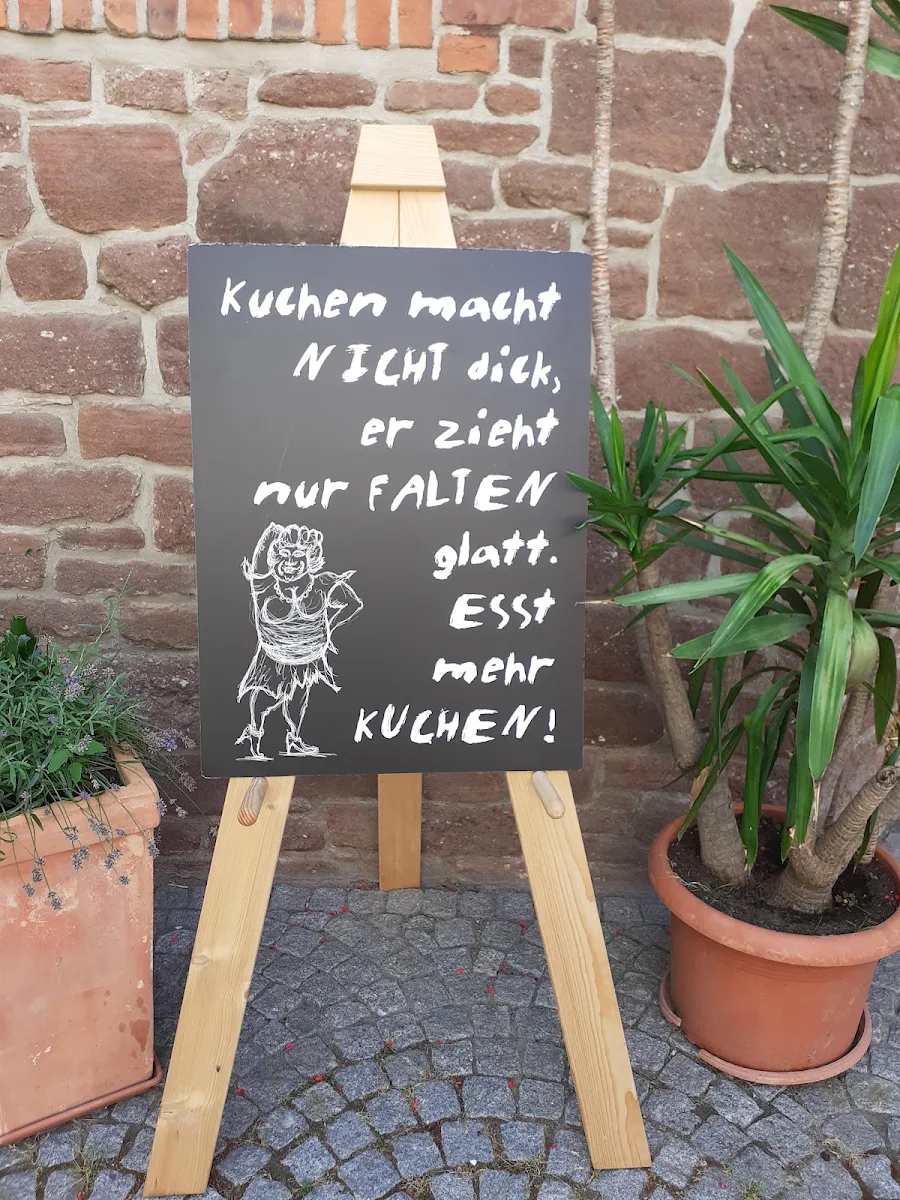 Kuchen macht
NICHT dick,
er zieht
nur FALTEN
glatt.
ESSt
mehr
KUCHEN!